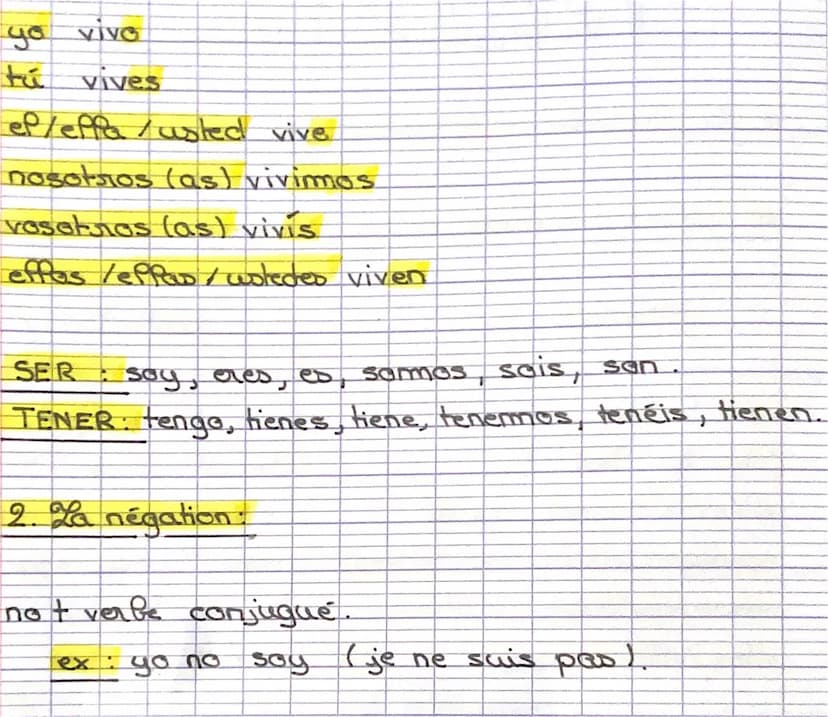 yo vivo
tú vives
el/ella/usted vive
nosotros (as) vivimos
vosotros (as) vivís
ellos/ellas/ustedes viven
SER : soy, eres, es, somos, sois, son.
TENER: tengo, tienes, tiene, tenemos, tenéis, tienen.
2. La négation:
no + verbe conjugué.
ex : yo no soy (je ne suis pas).